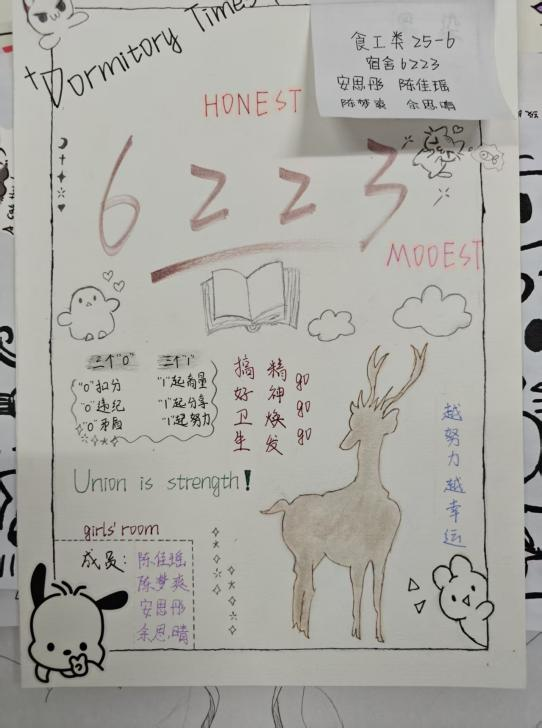 Dormitory Times
食工类25-6
宿舍6223
安思彤 陈佳瑶
陈梦爽 余思晴
HONEST
6223
MODEST
三个"0" 三个"1"
"0"扣分 "1"起商量
"0"违纪 "1"起分享
"0"矛盾 "1"起努力
搞好卫生
精神焕发
go go go
越努力越幸运
Union is strength!
girls' room
成员:陈佳瑶
陈梦爽
安思彤
余思晴